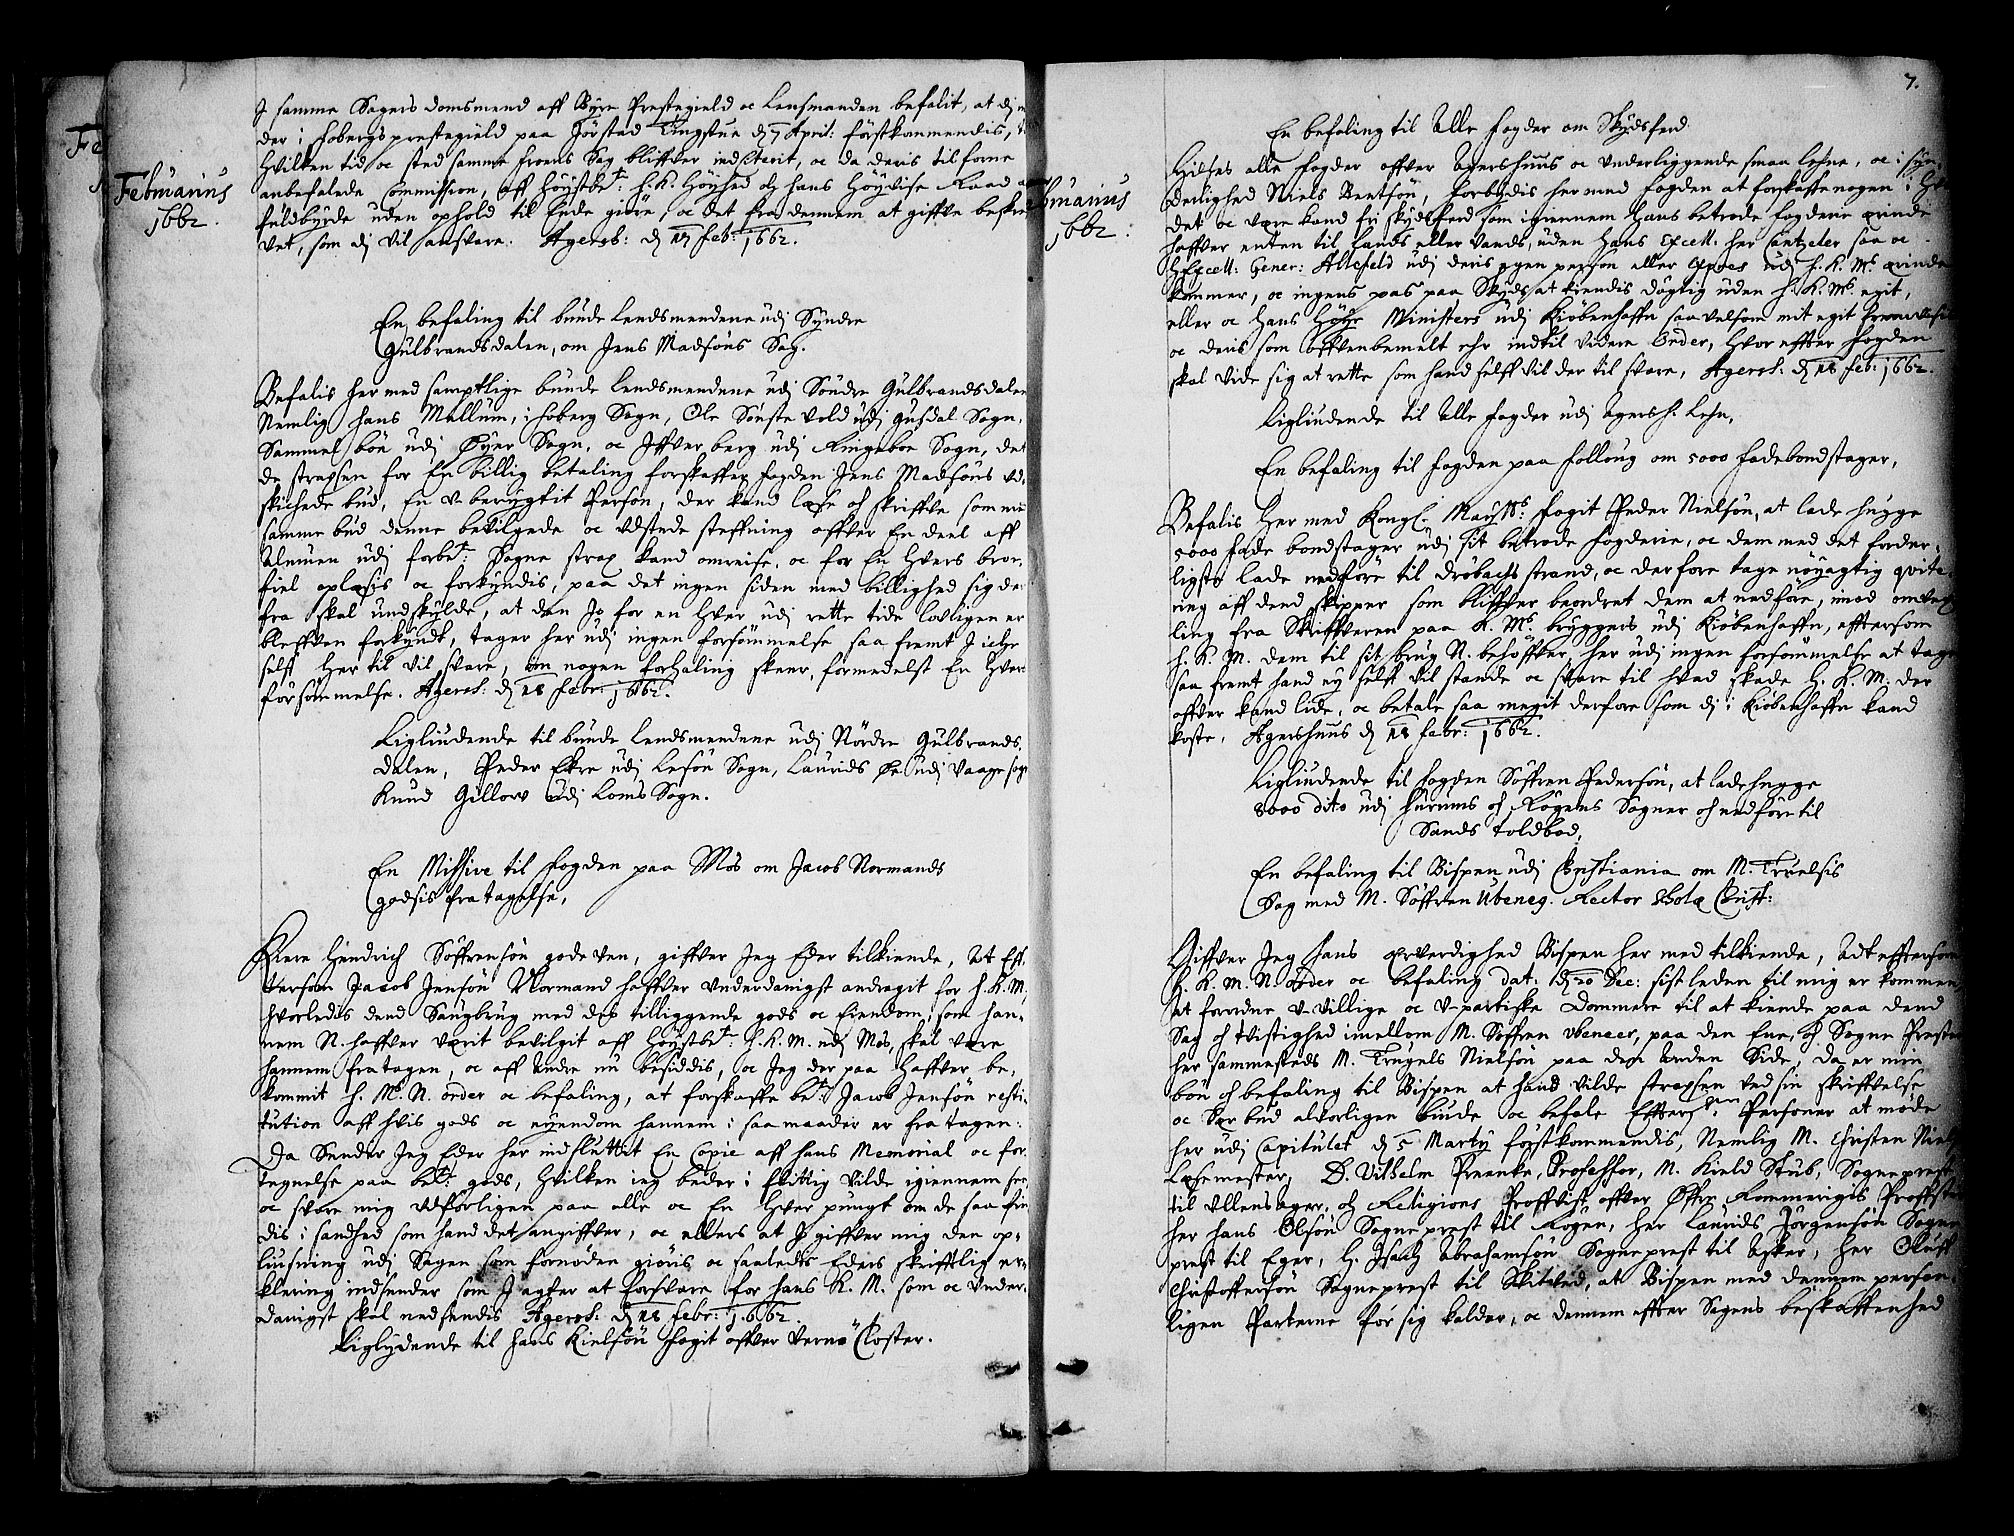 Februarius
1662.
I samme Sagers domsmend aff Øyre Prestegield oc Lensmanden befalit, at dj m
der i Fobergs prestegield paa Jörstad Tingstue dj 7 April: förstkommendis, t
hvilken tid oc sted samme froens Sag bliffver indsteffnit, oc da deris tilforne
anbefalede Commission, aff Höÿstbet: H. K. Höÿhed oc hans Höÿvise Raad
fuldbÿrde uden ophold til Ende giöre, oc det fra dennem at giffve beskre
vet, som dj vil ansvare. Agersh: dj 17 feb: 1662.
En befaling til bunde Lendsmendene udj Sÿndre
Gulbrandsdalen, om Jens Madsöns Sag.
Befalis her med samptlige bunde Lendsmendene udj Söndre Gulbrandsdalen
Nemlig Hans Mellum, i Foberg Sogn, Ole Sönstevold udj Gusdal Sogn,
Sammel böe udj Öÿer Sogn, oc Iffver berg udj Ringeboe Sogn, det
de straxsen for En billig betaling forskaffer fogden Jens Madsöns ud-
skickede bud, En uberÿgtit Person, der kand læse oc skriffve som med
samme bud denne bevilgede oc udstede steffning offver En deel aff
Almuen udj forbet: Sogne strax kand omreise, oc for En hvers bröe-
fiel oplæsis oc forkÿndis, paa det ingen siden med billighed sig de
fra skal undskÿlde, at den Jo for en hver udj rette tide lovligen er
bleffven forkÿndt, tager her udj ingen forsömmelse saa fremt I icke
selff her til vil svare, om nogen forhaling skeer, formedelst En hvers
forsömmelse. Agersh: dj 18 febr: 1662.
Ligliudende til bunde Lendsmendene udj Nördre Gulbrands-
dalen, Peder Ekre udj Lesöe Sogn, Laurids Öe udj Vaage sogn
Knud Gillow udj Loms Sogn.
En Missive til fogden paa Mos om Jacob Normands
godsis fratagelse,
Kiere Hendrich Söffrensön gode ven, giffver Jeg Eder tilkiende, At Eff-
tersom Jacob Jensön Normand haffver underdanigst andragit for H. K. M.
hvorledis dend Saugbrug med dis tilliggende gods oc Eiendom, som han-
nem N. haffver værit bevilgit aff Höÿstbet: H. K. M. udj Mos, skal være
hannem fratagen, oc aff Andre nu besiddis, oc Jeg der paa haffver be-
kommit H. Ms. N. order oc befaling, at forskaffe bet: Jacob Jensön resti-
tution aff hvis gods oc eÿendom hannem i saa maader er fratagen:
Da Sender Jeg Eder her indsluttit En Copie aff hans Memorial oc for-
tegnelse paa bet: gods, hvilken ieg beder i flittig vilde igiennem see,
oc svare mig udförligen paa alle oc En hver pungt om de saa fin-
dis i sandhed som hand det angiffver, oc ellers at I giffver mig den op-
liusning udj Sagen som fornöden giöris oc saaledis Eders skrifftlig er-
klæring indsender som I agter at forsvare for hans K. M. som oc under-
danigst skal nedsendis Agersh: dj 18 febr: 1662.
Liglÿdende til Hans Nielsön fogit offver Vernö Closter.
7.
bruarius
1662.
En befaling til Alle fogder om Skÿdsferd.
Hilses alle fogder offver Agershuus oc underliggende smaa Lehne, oc i sÿn-
derlighed Niels Bentsön, forbÿdis her med fogden at forskaffe nogen i hv
det oc være kand fri skÿdsferd som igiennem hans betrode fogderie ærinde
haffver enten til Lands eller Vands, uden Hans Excell. her Cantzeler saa oc
H. Excell: Gener: Allefeld udj deris egen person eller Expres udj H. K. Ms. ærinde
kommer, oc ingens pas paa Skÿds at kiendis dögtig uden H. K. Ms. egit,
eller oc hans Höÿe Ministers udj Kiöbenhaffn saavelsom mit egit
oc deris som offvenbemelt ehr indtil videre Order, hvor effter fogden
skal vide sig at rette som hand selff vil der til svare, Agersh: dj 18 feb: 1662.
Ligliudende til Alle fogder udj Agersh. Lehn.
En befaling til fogden paa Folloug om 5000 fadebondstager,
Befalis her med Kongl. Maÿtts: fogit Peder Nielsön, at lade hugge
5000 fade bondstager udj sit betrode fogderie, oc dem med det forder-
ligste lade nedföre til dröbachs strand, oc derfore tage nöÿagtig qvite-
ring aff dend skipper som bliffver beordret dem at nedföre, imod omvex-
ling fra Skriffveren paa K. Ms. brÿggers udj Kiöbenhaffn, efftersom
H. K. M. dem til sit brug N. behöffver, her udj ingen forsömmelse at tage
saa fremt hand eÿ selff vil stande oc svare til hvad skade H. K. M. der
offver kand lide, oc betale saa megit derfore som dj i Kiöbenhaffn kand
koste, Agershuus dj 18 febr: 1662.
Ligliudende til fogden Söffren Pedersön, at lade hugge
8000 dito udj Hurums oc Rögens Sogner oc nedföre til
Sands toldbod,
En befaling til Bispen udj Christiania om M. Truelsis
Sag med M. Söffren Ubeneg. Rector Scholæ Christ:
Giffver Jeg Hans ærverdighed Bispen her med tilkiende, Adt efftersom
H. K. M. N. order oc befaling dat: dj 20 Dec: sistleden til mig er kommen
At forordne u-villige oc u-partiske Dommere til at kiende paa dend
Sag oc tvistighed imellom M. Söffren Ubeneer, paa den Ene, oc Sogne Presten
her sammesteds M. Trugels Nielsön paa den Anden Side, da er min
bön oc befaling til Bispen at hand vilde straxsen ved sin skriffvelse
oc vær bud alvorligen biude oc befale Effterschn: Personer at möde
her udj Capitulet dj 5 Martÿ förstkommendis, Nemlig M. Christen Niels
Læsemester, D. Vilhelm Frenke, Professor, M. Kield Stub, Sogneprest
til Ullensager, oc Religions Proffvist offver Öffre Rommerigis Proffstie
her Hans Olsön Sogneprest til Rögen, her Laurids Jörgensön Sogne
prest til Eger, H. Isach Abrahamsön Sogneprest til Asker, her Oluff
Christoffersön Sogneprest til Skitved, at Bispen med dennem person-
ligen Parterne for sig kalder, oc dennem effter Sagens beskaffenhed